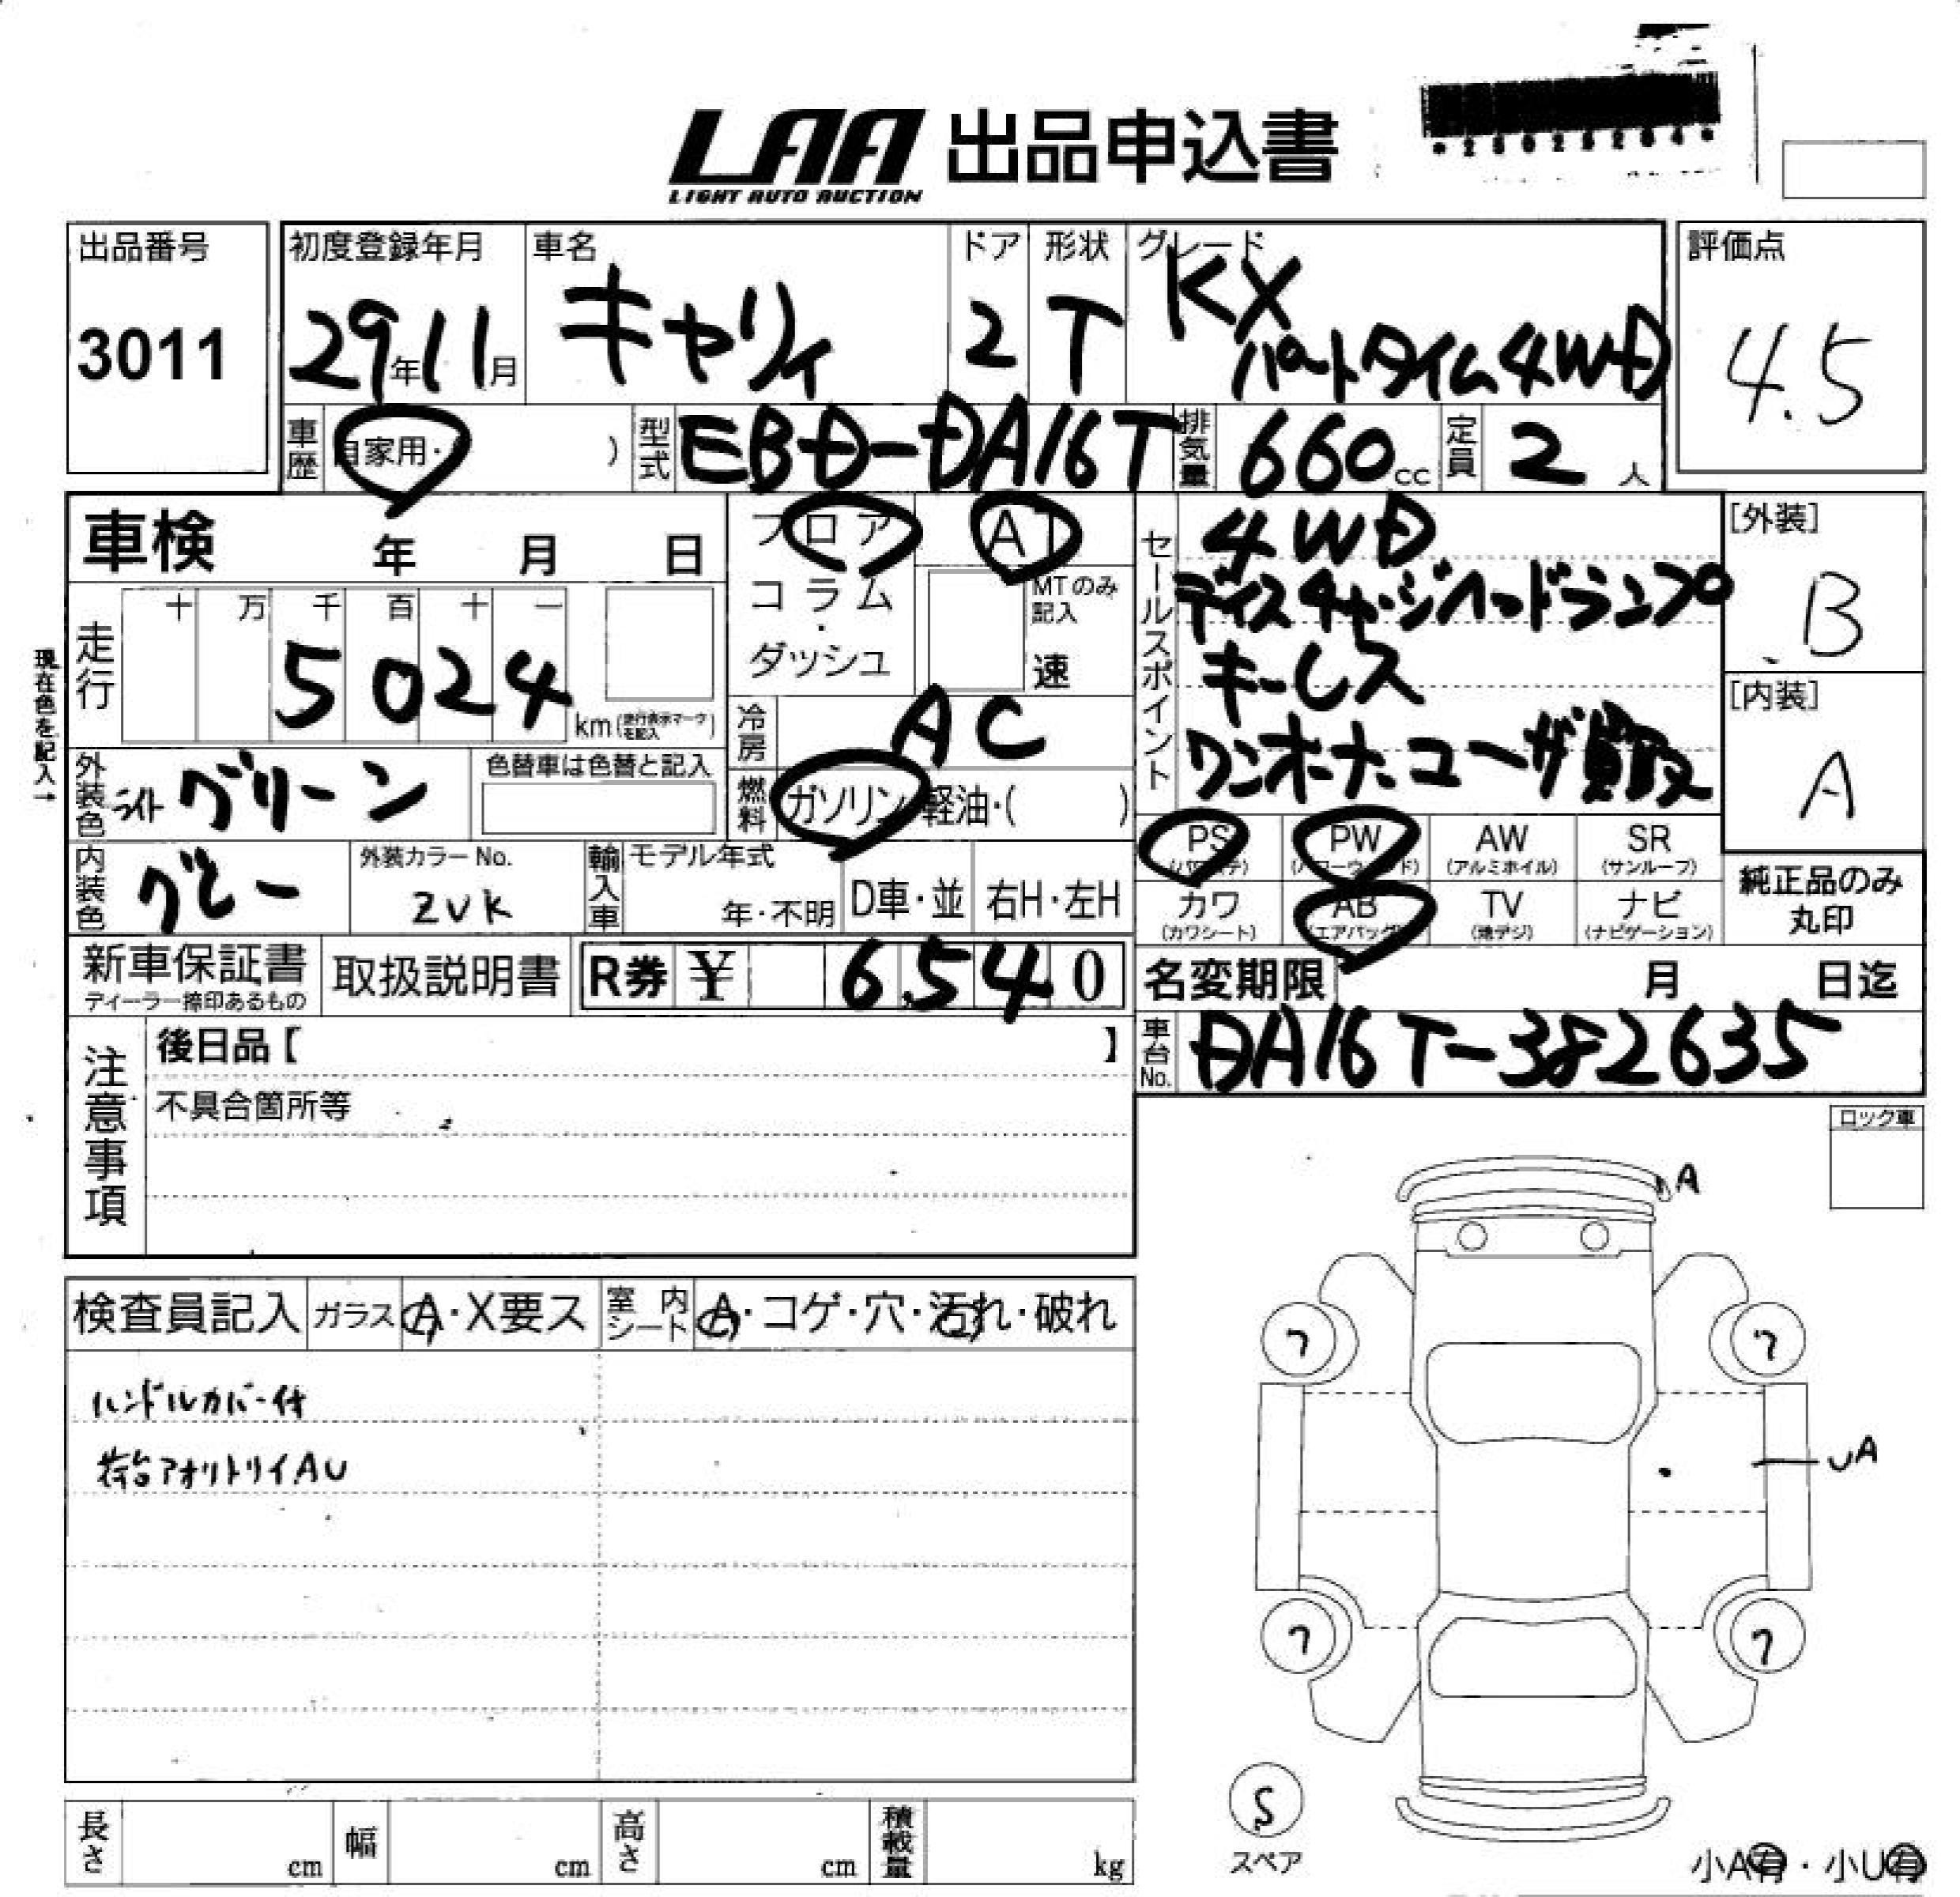 LAA 出品申込書
LIGHT AUTO AUCTION
出品番号
3011
初度登録年月
29年11月
車名
キャリィ
ドア
2
形状
T
グレード
KX
パートタイム4WD
評価点
4.5
車歴
自家用・( )
型式
EBD-DA16T
排気量
660cc
定員
2人
車検 年 月 日
フロア
コラム・
ダッシュ
AT
MTのみ記入
速
セールスポイント
4WD
ディスチャージヘッドランプ
キーレス
ワンオーナーユーザー買取
[外装]
B
[内装]
A
現在色を記入→
走行
十 万 千 百 十 一
5024
km(走行表示マークを記入)
冷房
AC
外装色
ライトグリーン
色替車は色替と記入
燃料
ガソリン・軽油・( )
内装色
グレー
外装カラーNo.
ZVK
輸入車
モデル年式
年・不明
D車・並
右H・左H
PS
PW
(パワーウィンド)
AW
(アルミホイル)
SR
(サンルーフ)
カワ
(カワシート)
AB
(エアバッグ)
TV
(地デジ)
ナビ
(ナビゲーション)
純正品のみ
丸印
新車保証書
ディーラー捺印あるもの
取扱説明書
R券 ¥ 6,540
名変期限 月 日迄
車台No.
DA16T-382635
注意事項
後日品【 】
不具合箇所等
ロック車
検査員記入
ガラス A・X要ス
室内シート A・コゲ・穴・汚れ・破れ
ハンドルカバー付
荷台アオリトリイAU
A
7
7
UA
7
7
S
スペア
長さ cm
幅 cm
高さ cm
積載量 kg
小A有・小U有